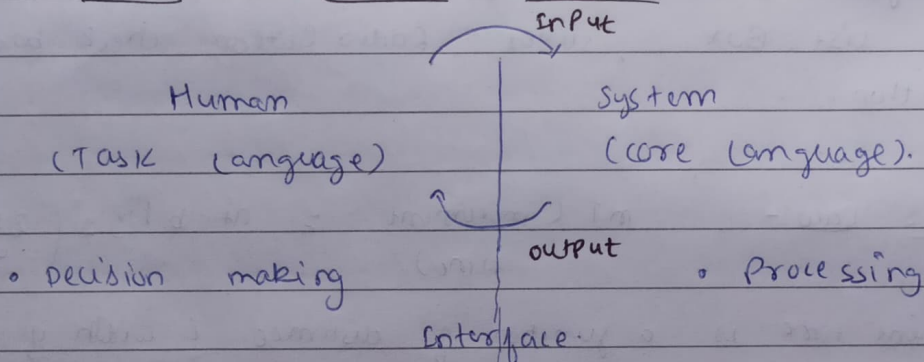 Input
Human System
(Task Language) (core Language).
output
• Decision making • Processing
Interface.